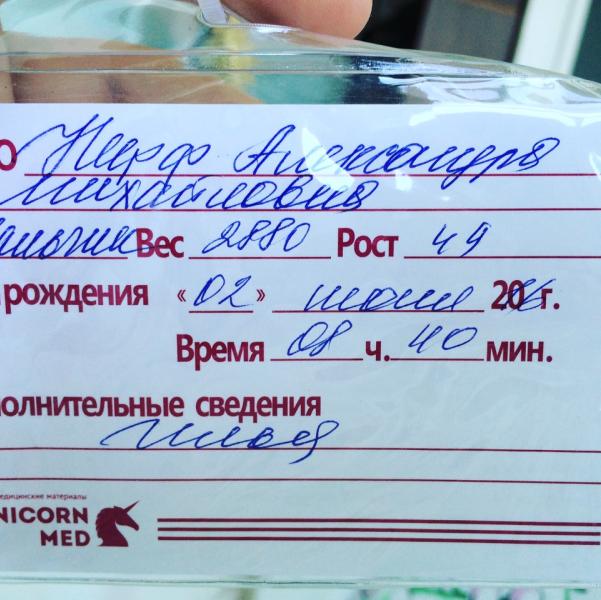 О Нерф Александра
Михайловна
мальчик Вес 2880 Рост 49
рождения «02» июня 2016 г.
Время 08 ч. 40 мин.
полнительные сведения
Илья
едицинские материалы
NICORN
MED